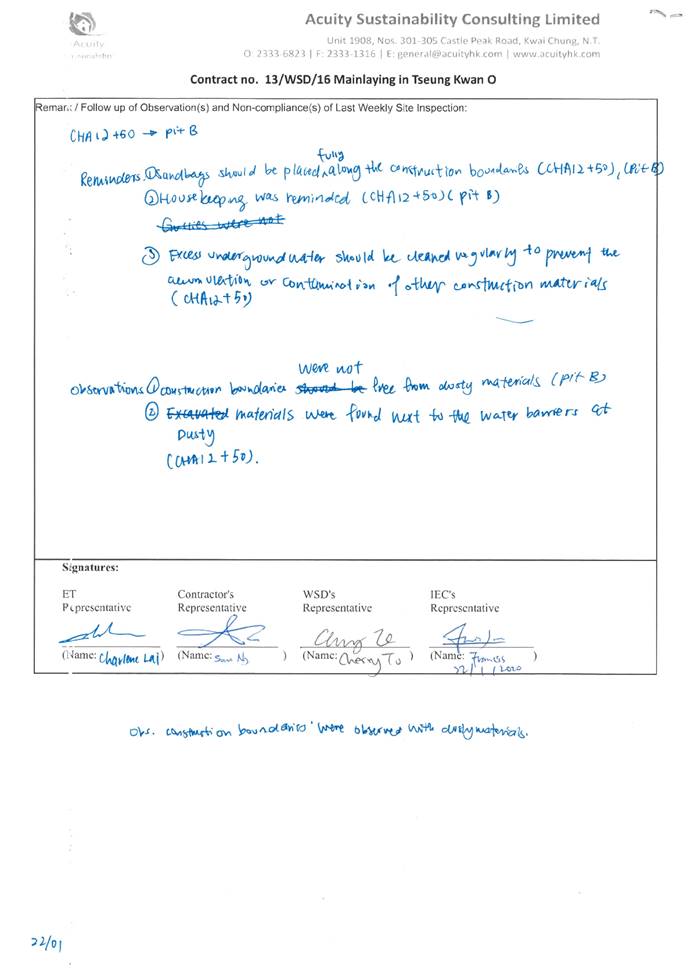 Acuity
Acuity Sustainability Consulting Limited
Unit 1908, Nos. 301-305 Castle Peak Road, Kwai Chung, N.T.
O: 2333-6823 | F: 2333-1316 | E: general@acuityhk.com | www.acuityhk.com
Contract no. 13/WSD/16 Mainlaying in Tseung Kwan O
Remark: / Follow up of Observation(s) and Non-compliance(s) of Last Weekly Site Inspection:
CHA12+60 → pit B
fully
Reminders. ① sandbags should be placed ^ along the construction boundaries (CHA12+50), (Pit B)
② Housekeeping was reminded (CHA12+50) (pit B)
Gullies were not
③ Excess underground water should be cleaned regularly to prevent the
accumulation or contamination of other construction materials
(CHA12+50)
were not
Observations ① construction boundaries should be free from dusty materials (pit B)
② Excavated materials were found next to the water barriers at
Dusty
(CHA12+50).
Signatures:
ET Contractor's WSD's IEC's
Representative Representative Representative Representative
(Name: Charlene Lai) (Name: Sam Ng ) (Name: Cherry To ) (Name: Francis )
22/1/2020
Obs. construction boundaries were observed with dusty materials.
22/01